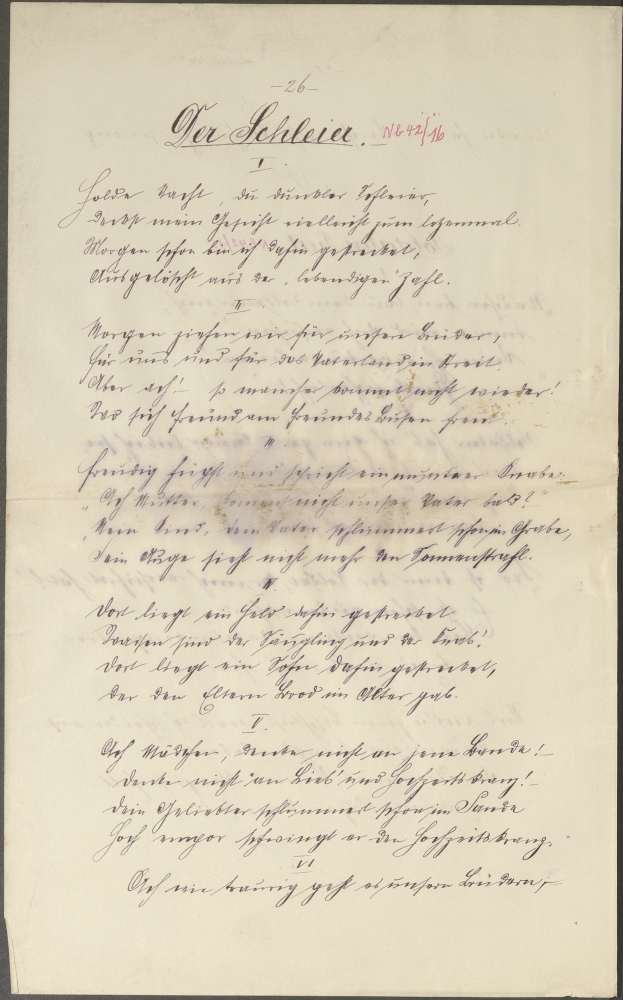 -26-
Der Schleier. Nb 42/16
I.
Holde Nacht, du dunkler Schleier,
Deckst mein Gesicht vielleicht zum letzenmal.
Morgen schon bin ich dahin gestrecket,
Ausgelöscht aus der lebendigen Zahl.
II.
Morgen ziehen wir für unsere Brüder,
Für uns und für das Vaterland in Streit.
Aber ach! so mancher kommt nicht wieder!
Wo sich Freund am Freundes Busen freut.
III
Freudig hüpft und spricht ein muntrer Knabe:
"Ach Mutter, kommt nicht unser Vater bald?"
"Mein Kind, dein Vater schlummert schon im Grabe,
Sein Auge sieht nicht mehr den Sonnenstrahl.
IV.
Dort liegt ein Held dahin gestrecket
Waisen sind der Säugling und der Knab'.
Dort liegt ein Sohn dahin gestrecket,
Der den Eltern Brod im Alter gab.
V.
Ach Mädchen, denke nicht an jene Bande!
Denke nicht an Lieb' und Hochzeitskranz!
Dein Geliebter schlummert schon im Sande
Hoch empor schwingt er den Hochzeitskranz.
VI
Ach wie traurig geht es unsern Brüdern,